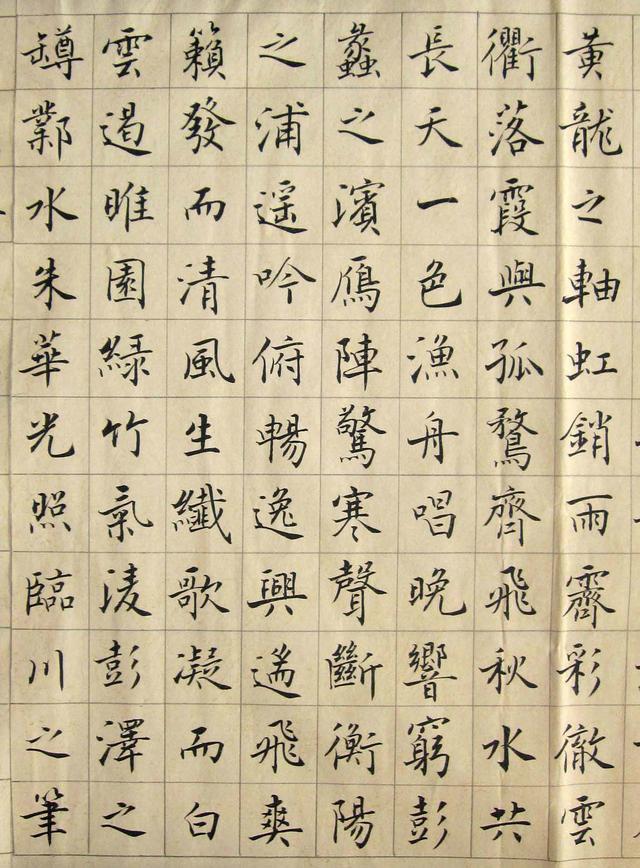 黃龍之軸虹銷雨霽彩徹雲
衢落霞與孤鶩齊飛秋水共
長天一色漁舟唱晚響窮彭
蠡之濱鴈陣驚寒聲斷衡陽
之浦遥吟俯暢逸興遄飛爽
籟發而清風生纖歌凝而白
雲遏睢園緑竹氣淩彭澤之
罇鄴水朱華光照臨川之筆